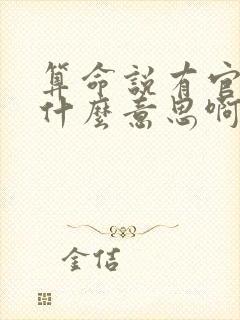 算命說有官
什麼意思啊
金佶